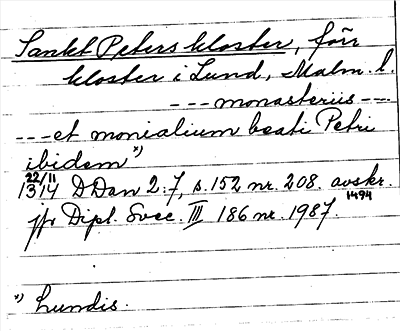 Sankt Peters kloster, förr
kloster i Lund, Malm. l.
--- monasteriis ---
--- et monialium beati Petri
ibidem *)
22/11
1314 DDan 2:7, s. 152 nr. 208. avskr. 1494
jfr Dipl. Svec. III 186 nr. 1987.
*) Lundis.